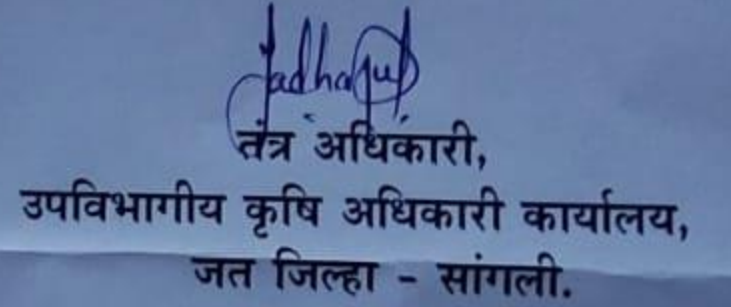 तंत्र अधिकारी,
उपविभागीय कृषि अधिकारी कार्यालय,
जत जिल्हा - सांगली.